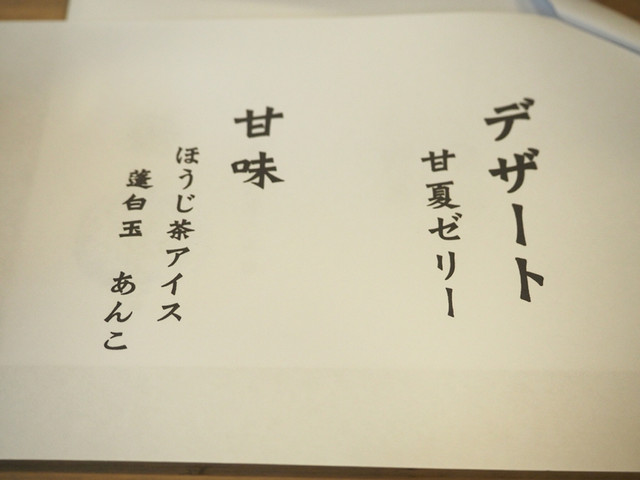 デザート
甘夏ゼリー
甘味
ほうじ茶アイス
蓬白玉 あんこ